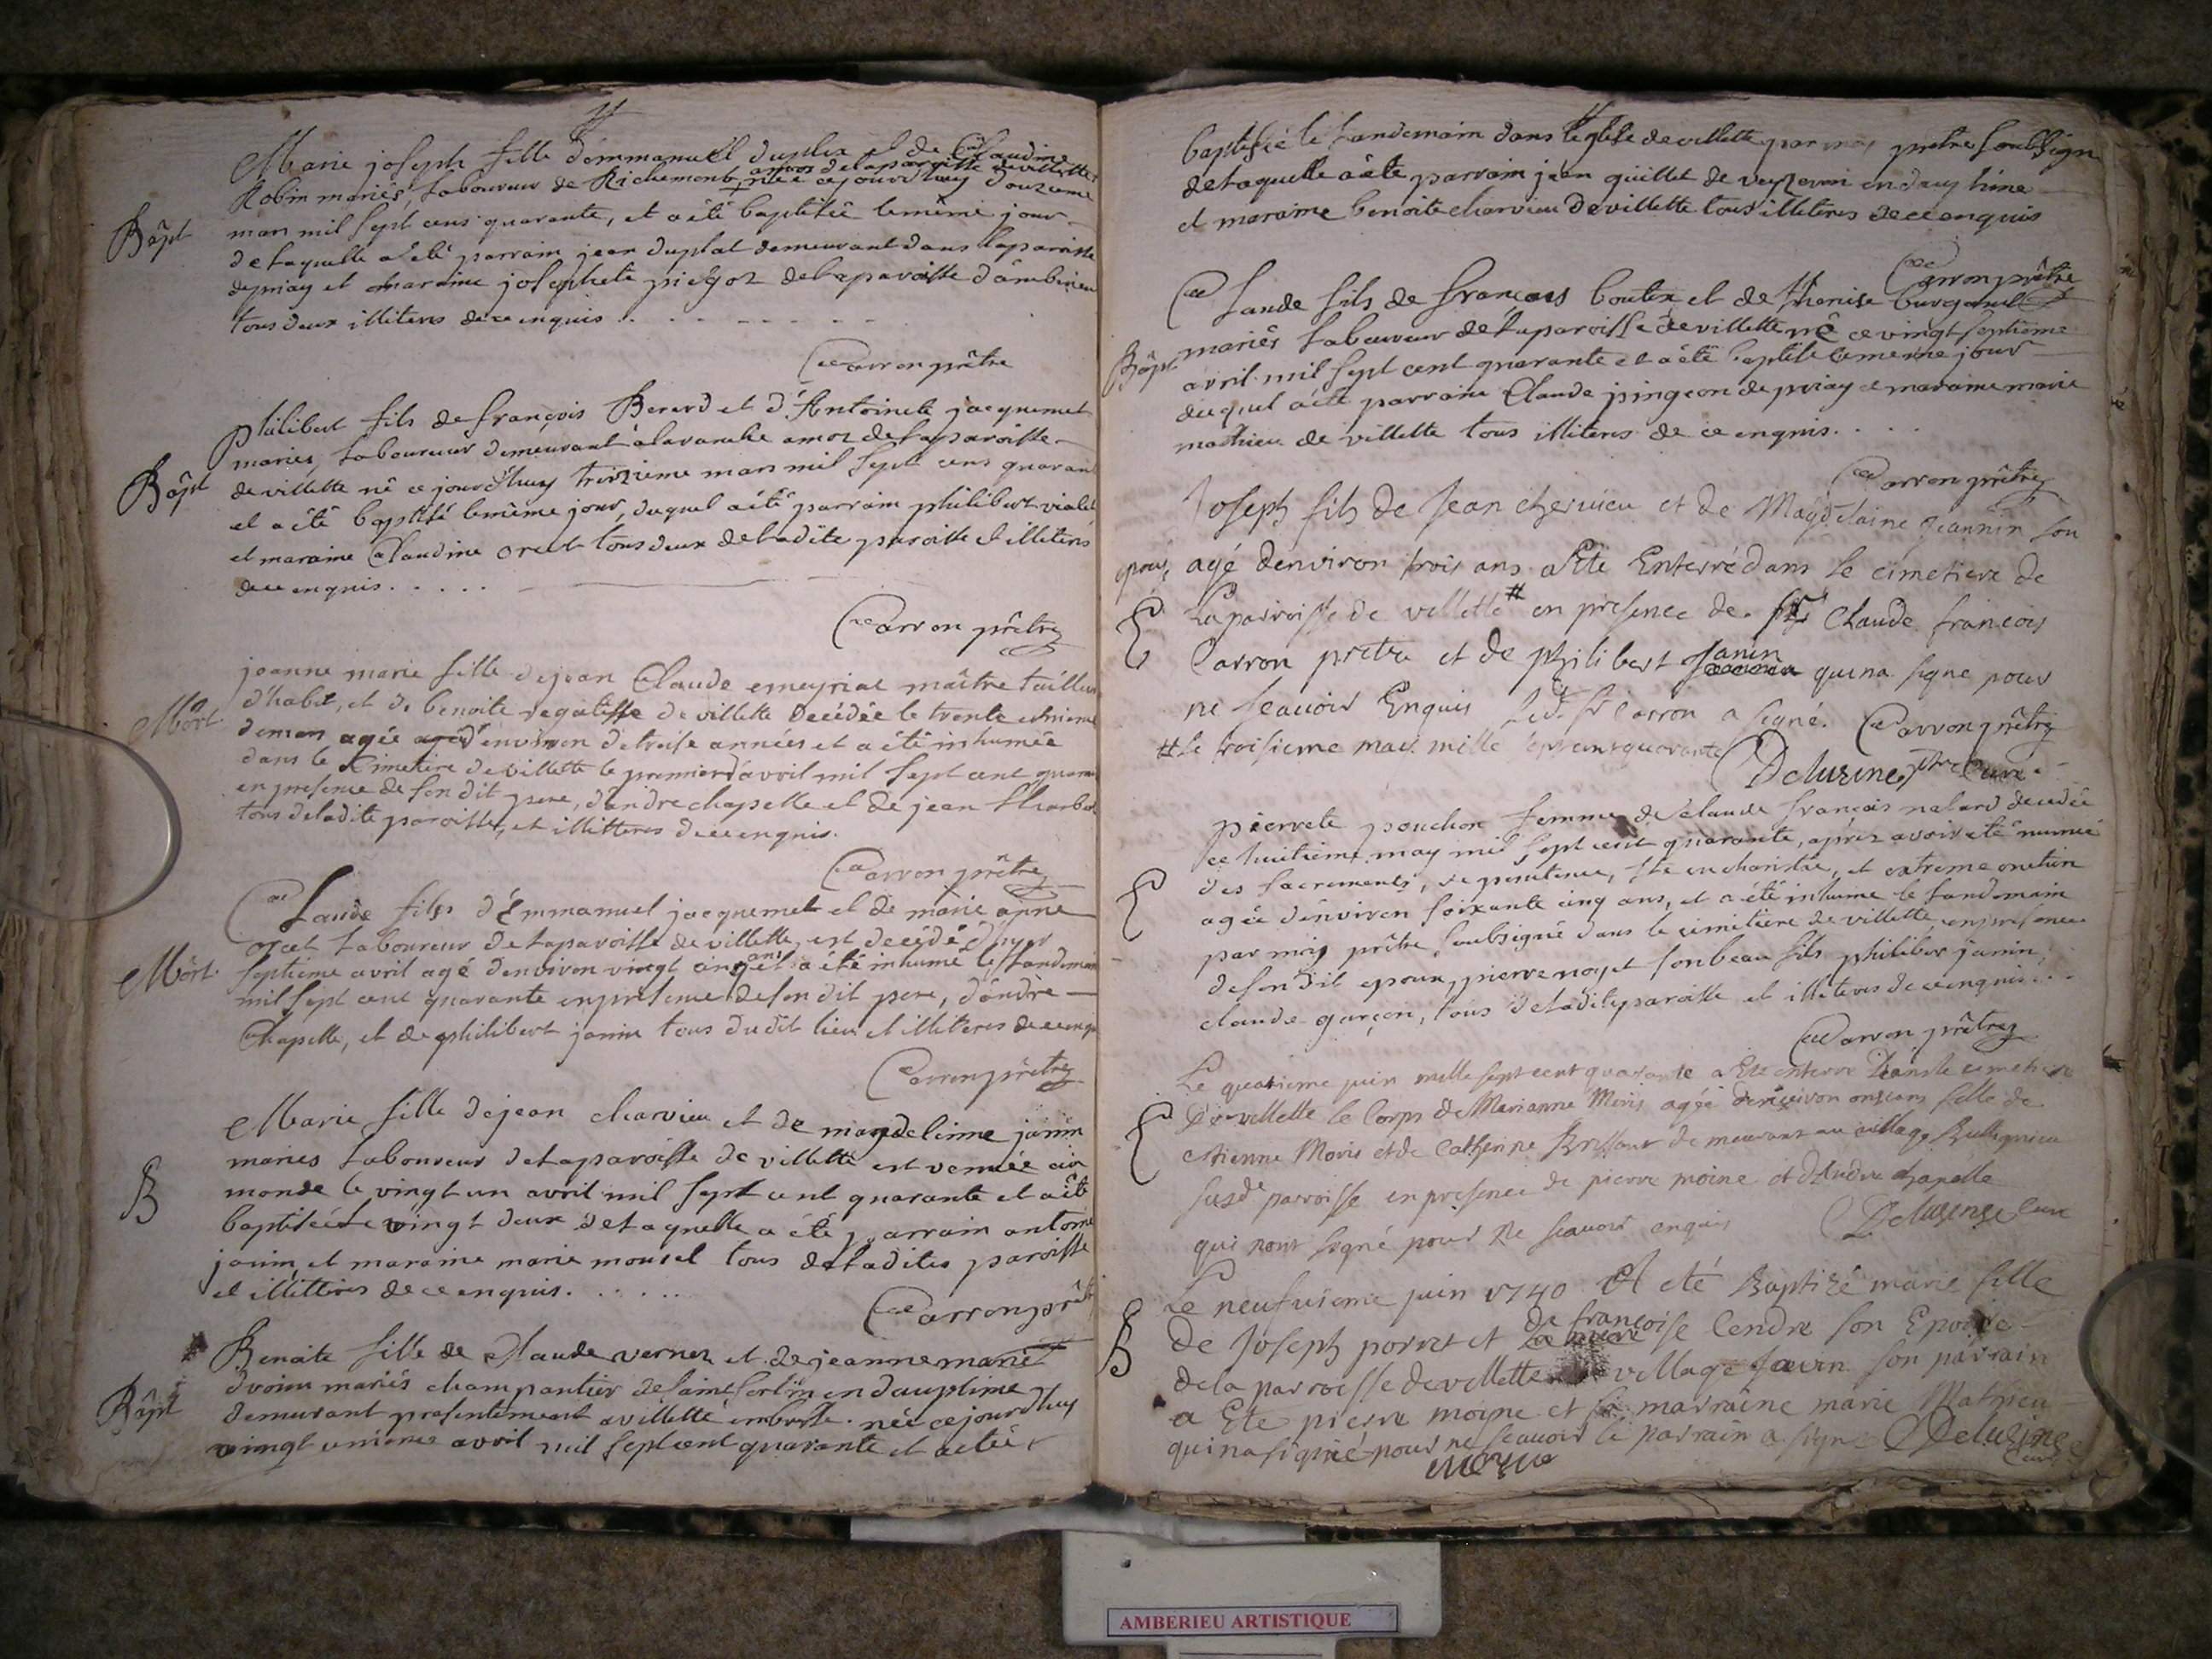 Marie joseph fille d'emmanuël duplex et de Claudine
Robin mariés, Laboureur de Richemont, amos de la paroisse de villette née ce jourdhuy douzieme
Bâpt
mars mil sept cens quarante, et a été baptisée le même jour
de laquelle a été parrain jean duplat demeurant dans la paroisse
de priay et maraine josephete piégoz de la paroisse d'ambrieu
tous deux illiteres de ce enquis
Carron prêtre
philibert fils de françois Berard et d'Antoinete jacquemet
mariés, Laboureur demeurant à la varanche amoz de la paroisse
Bâpt
de villette né ce jourd'huy treizieme mars mil sept cens quarante
et a été baptisé le même jour, duquel a été parrain philibert vialet
et maraine Claudine orcet tous deux de ladite paroisse et illiteres
de ce enquis
Carron prêtre
jeanne marie fille de jean Claude emeyriat maître tailleur
Môrt
d'habit, et de benoite de villette decédée le trente unieme
de mars agée d'environ de treise années et a été inhumée
dans le Cimetiere de villette le premier d'avril mil sept cent quarante
en presence de son dit pere, d'andré chapelle et de jean
tous de ladite paroisse, et illitteres de ce enquis.
Carron prêtre
Claude fils d'Emmanuel jacquemet et de marie anne
orcet Laboureur de la paroisse de villette, est decédé
Môrt
septiéme avril agé d'environ vingt cinq ans et a été inhumé le landemain
mil sept cent quarante en presence de son dit pere, d'andré
Chapelle, et de philibert janin tous dudit lieu et illiteres de ce enquis
Carron prêtre
Marie fille de jean charvieu et de magdeleinne janin
mariés Laboureur de la paroisse de villette est venuée au
B
monde le vingt un avril mil sept cent quarante et a été
baptisée le vingt deux de laquelle a été parrain antoine
janin, et maraine marie mousel tous de ladites paroisse
et illitteres de ce enquis.
Carron prêtre
Benoite fille de Claude vernex et de jeanne marie
mariés charpantier de saint sorlin en dauphiné
Bâpt
demeurant presentement a villette née ce jourdhuy
vingt unieme avril mil sept cent quarante et a été
baptisé le landemain dans l'eglise de villette par moy prêtre soubsigné
de laquelle a été parrain jean guillet de en dauphiné
et maraine benoite charvieu de villette tous illiteres de ce enquis
Carron prêtre
Claude fils de françois boutex et de
mariés Laboureur de la paroisse de villette né ce vingt septieme
Bâpt
avril mil sept cent quarante et a été baptisé le meme jour
duquel a été parrain Claude pingeon de priay et maraine marie
mathieu de villette tous illiteres de ce enquis.
Carron prêtre
Joseph fils de Jean cherview et de Magdelaine Jeannin son
epouse, agé denviron trois ans a Ete Enterré dans le cimetiere de
La parroisse de villette # en presence de Claude francois
Carron pretre et de philibert Janin qui na signe pour
ne scauoir Enquis Led. Sr Carron a signé. Carron prêtre
# le troisieme may mille sept cent quarante
Deluzine ptre Curé
pierrete pouchon femme de Claude françois nalard decedée
ce huitieme may mil sept cent quarante, après avoir été munie
des sacrements, de penitence, ste eucharistie, et extreme onction
agée d'environ soixante cinq ans, et a été inhumé le landemain
par moy prêtre soubsigné dans le cimetiere de villette, en presence
de son dit epoux, pierre noyet son beau fils philibert janin
claude garçon, tous de ladite paroisse et illiteres de ce enquis
Carron prêtre
Le quatrieme juin mille sept cent quarante a Ete enterré dans le cimetiere
De villette le Corps de Marianne Moris agée denuiron onze ans fille de
etienne Moris et de Catherine demeurant au village
susde parroisse en presence de pierre moine et d'Andre chapelle
qui nont signé pour ne scauoir enquis Deluzine Cure
Le neufuieme juin 1740 A eté Baptizé marie fille
B
De Joseph porret et de françoise Cendre son Epouse
de la parroisse de villette village son parrain
a Ete pierre moine et sa marraine marie Mathieu
qui na signé pour ne scauoir le parrain a signe Deluzine
moyne
Curé
AMBERIEU ARTISTIQUE